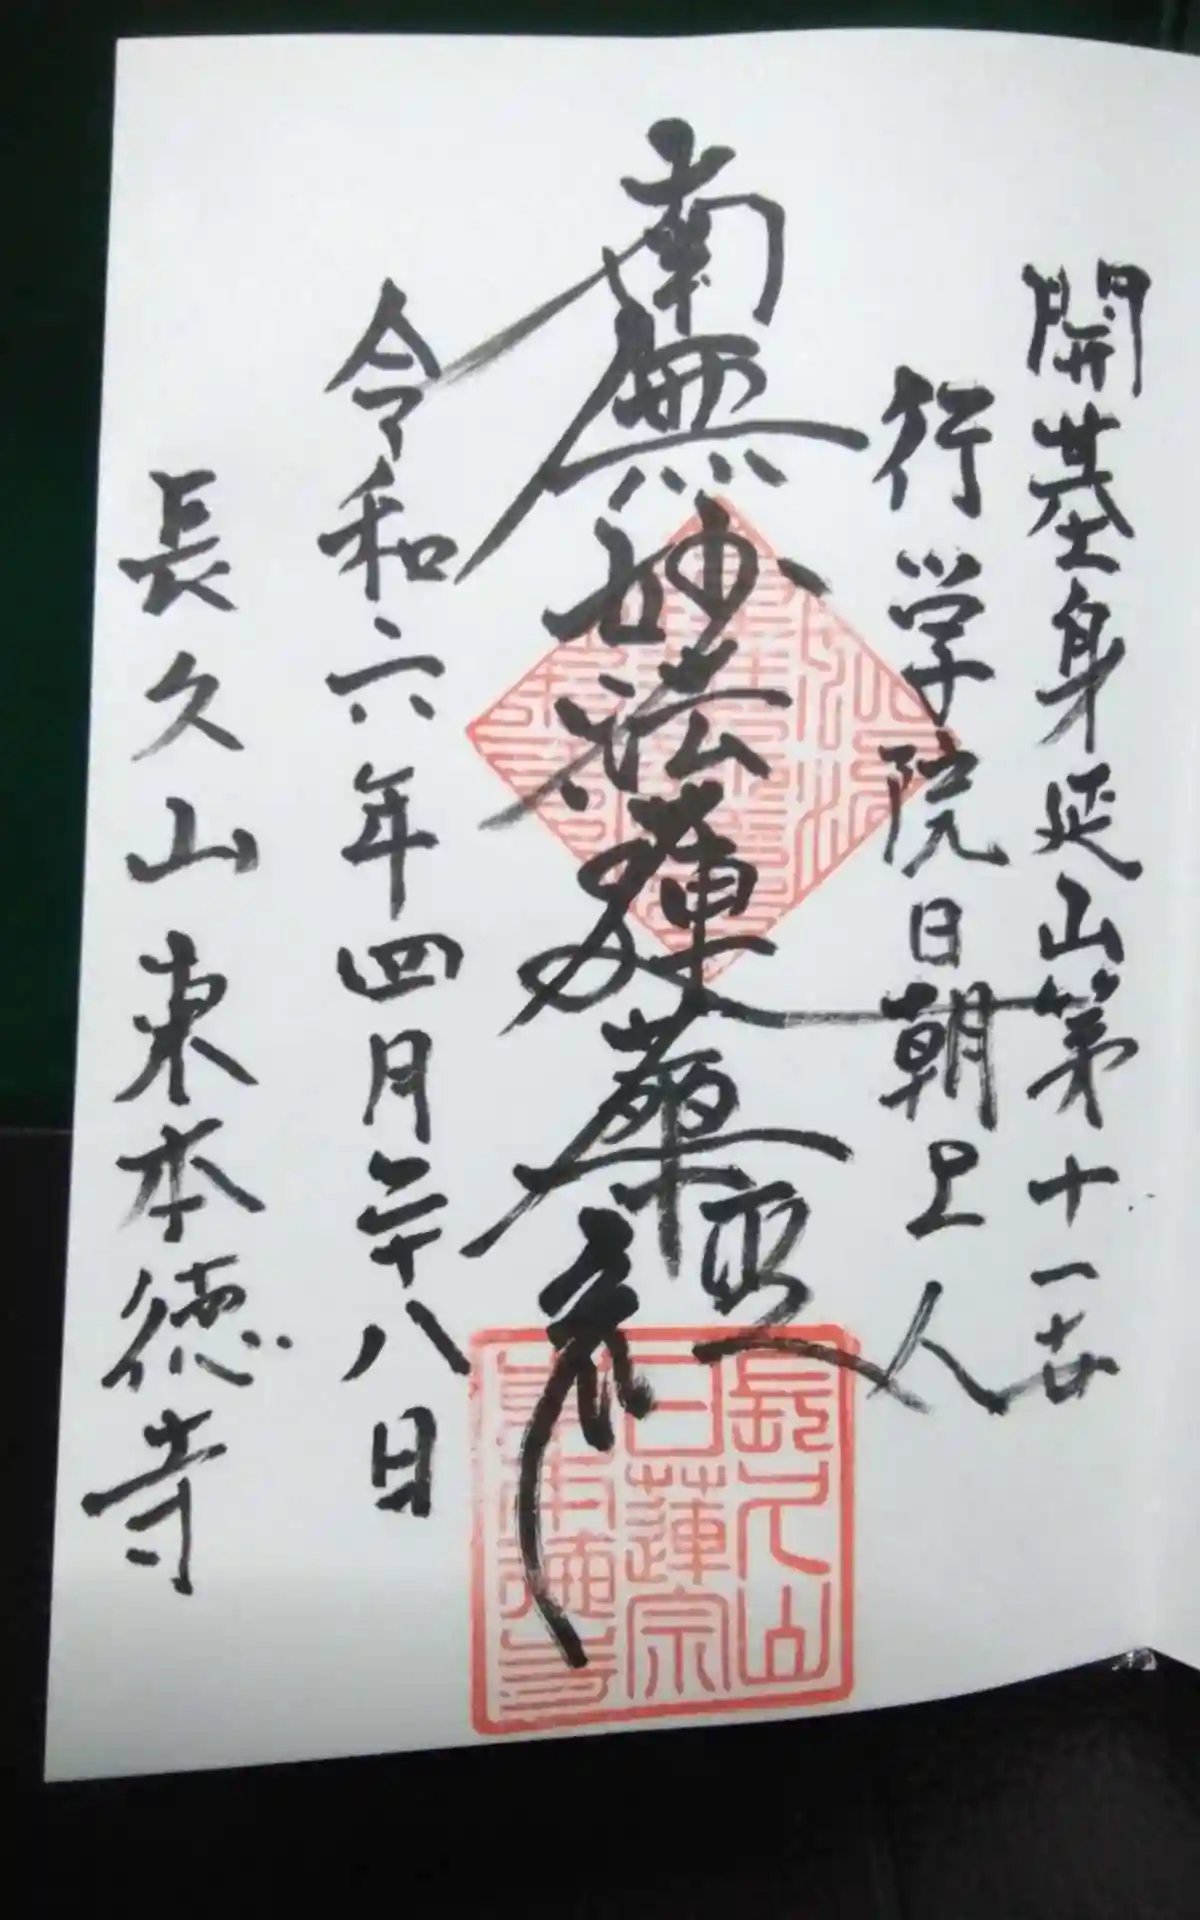 開基身延山第十一世
行学院日朝上人
南無妙法蓮華経
令和六年四月二十八日
長久山東本徳寺
長久山
日蓮宗
東本徳寺